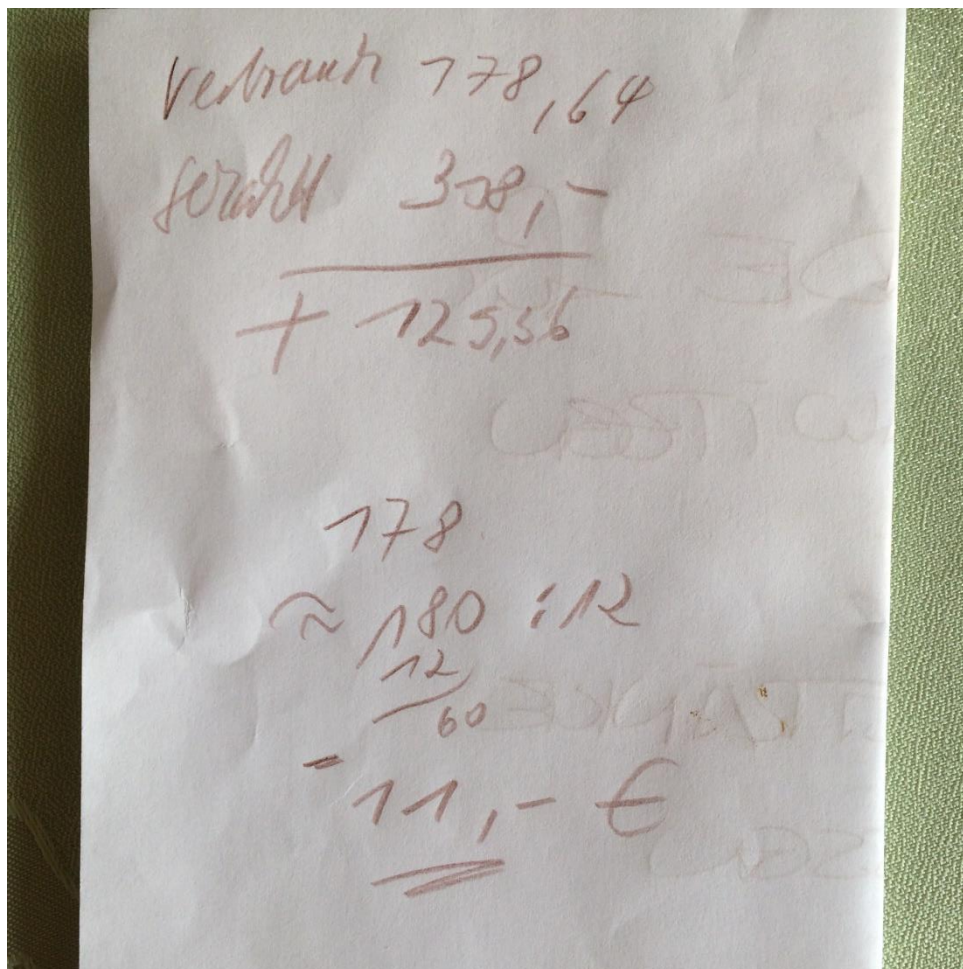 Verbrauch 178,64
gezahlt 308,-
+ 129,36
178
≈ 180 : 12
12
60
= 11,- €